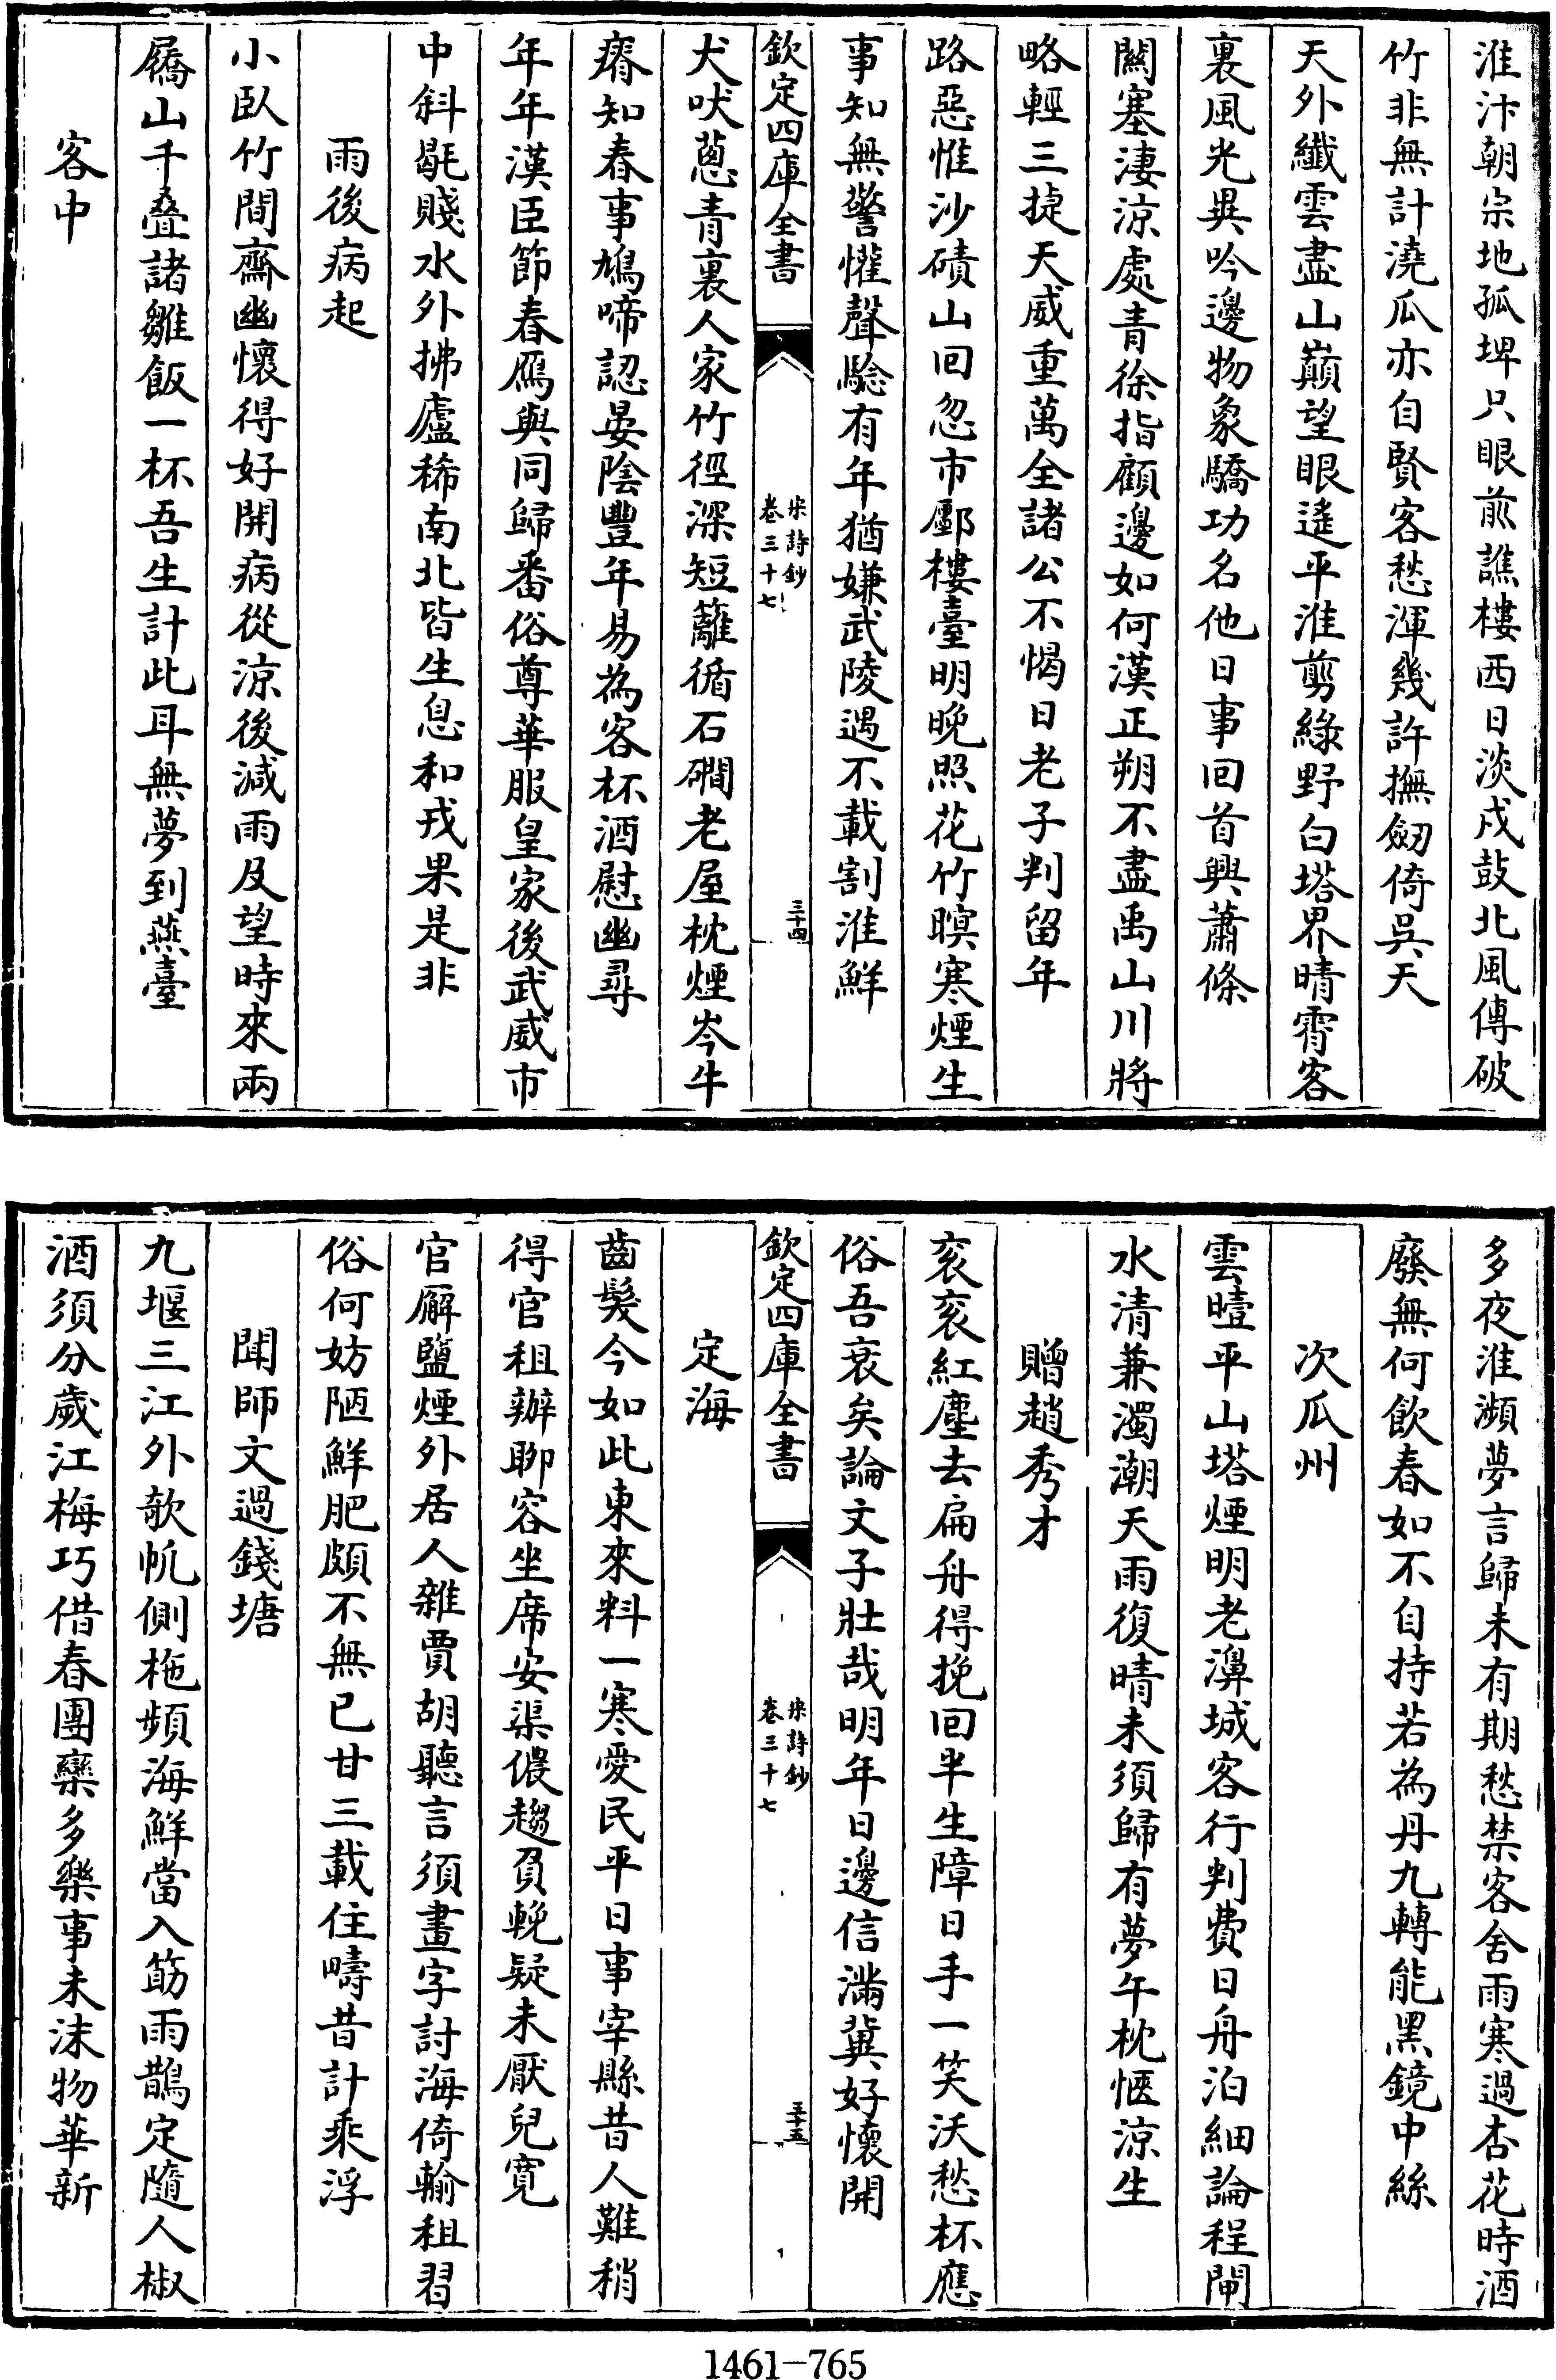 淮汴朝宗地孤埤只眼前譙樓西日淡戍鼓北風傳破
竹非無計澆瓜亦自賢客愁渾幾許撫劒倚吳天
天外纖雲盡山巔望眼遙平淮剪綠野白塔界晴霄客
裏風光異吟邊物象驕功名他日事回首興蕭條
關塞淒涼處青徐指顧邊如何漢正朔不盡禹山川將
略輕三捷天威重萬全諸公不愒日老子判留年
路惡惟沙磧山回忽市鄽樓臺明晚照花竹暝寒煙生
事知無警懽聲騐有年猶嫌武陵遇不載割淮鮮
欽定四庫全書
宋詩鈔
卷三十七
三十四
犬吠蔥青裏人家竹徑深短籬循石磵老屋枕煙岑牛
瘠知春事鳩啼認晏陰豐年易為客杯酒慰幽尋
年年漢臣節春鴈與同歸番俗尊華服皇家後武威市
中斜毼賤水外拂廬稀南北皆生息和戎果是非
雨後病起
小臥竹間齋幽懷得好開病從涼後減雨及望時來兩
屩山千叠諸雛飯一杯吾生計此耳無夢到燕臺
客中
多夜淮瀕夢言歸未有期愁禁客舍雨寒過杏花時酒
廢無何飲春如不自持若為丹九轉能黑鏡中絲
次瓜州
雲曀平山塔煙明老濞城客行判費日舟泊細論程閘
水清兼濁潮天雨復晴未須歸有夢午枕愜涼生
贈趙秀才
衮衮紅塵去扁舟得挽回半生障日手一笑沃愁杯應
俗吾衰矣論文子壯哉明年日邊信滿冀好懷開
欽定四庫全書
宋詩鈔
卷三十七
三十五
定海
齒髮今如此東來料一寒愛民平日事宰縣昔人難稍
得官租辦聊容坐席安渠儂趨負輓疑未厭兒寬
官廨鹽煙外居人雜賈胡聽言須畫字討海倚輸租習
俗何妨陋鮮肥頗不無已甘三載住疇昔計乘浮
聞師文過錢塘
九堰三江外欹帆側柂頻海鮮當入筯雨鵲定隨人椒
酒須分歲江梅巧借春團欒多樂事未沫物華新
1461-765